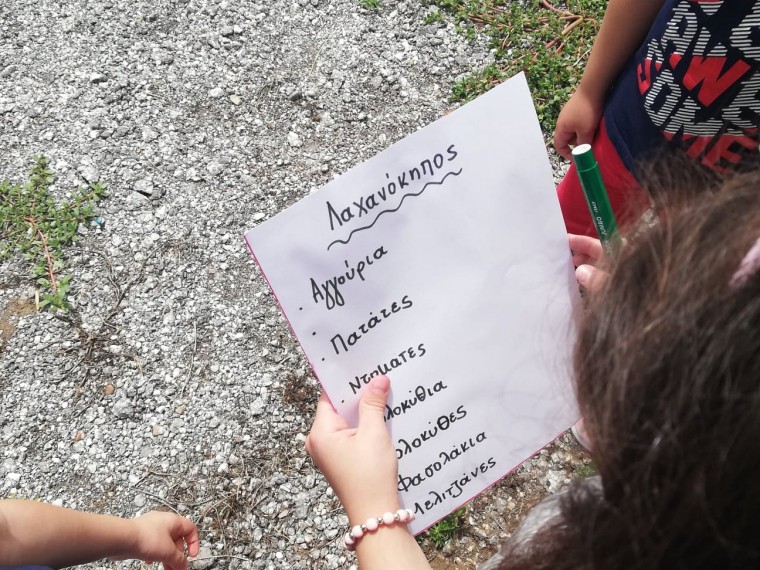 Λαχανόκηπος
. Αγγούρια
.
. Πατάτες
. Ντοματες
λοκύθια
ολοκύθες
Φασολάκια
Μελιτζάνες